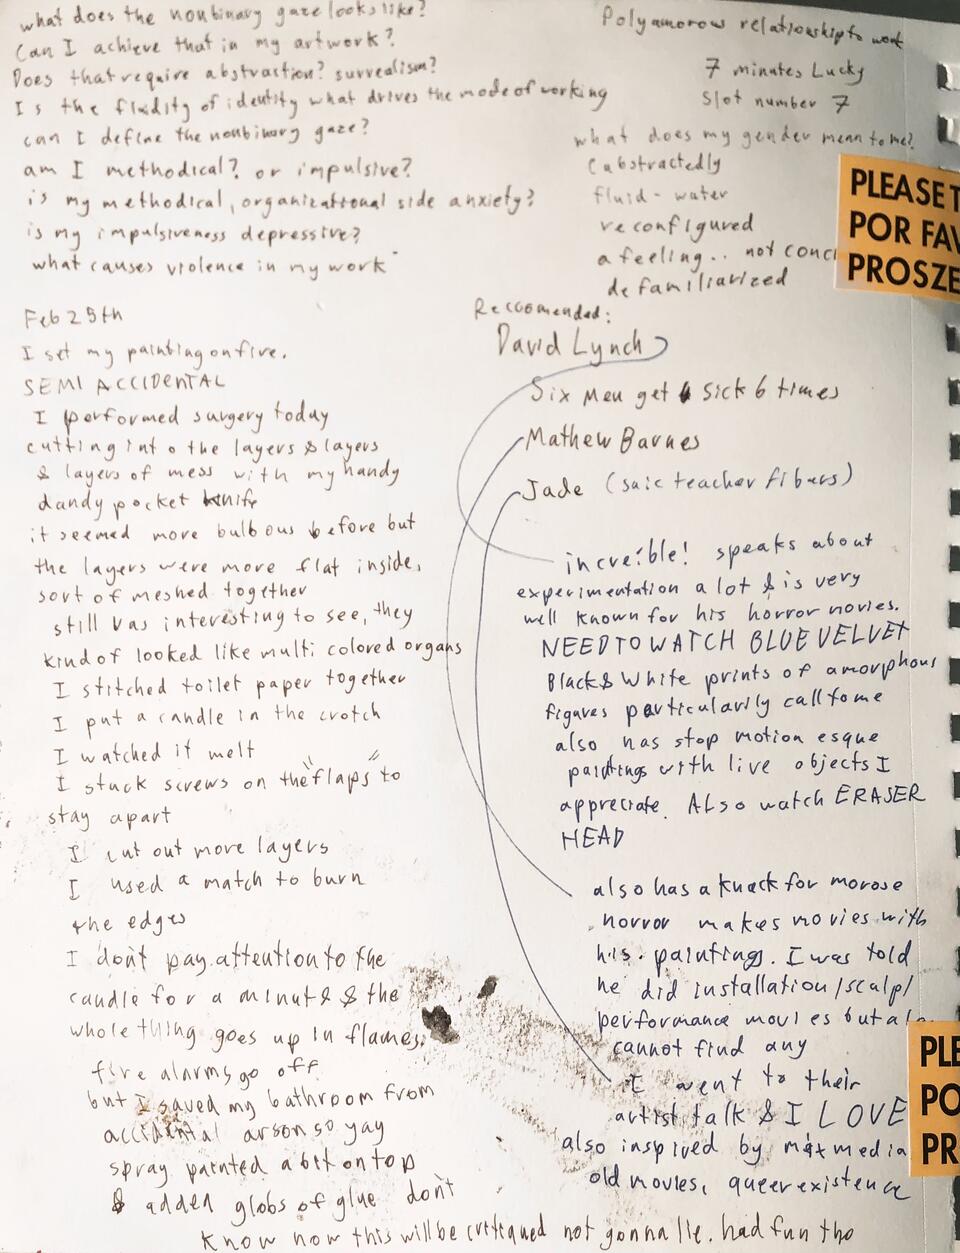 what does the nonbinary gaze looks like?
Can I achieve that in my artwork?
Does that require abstraction? surrealism?
Is the fluidity of identity what drives the mode of working
can I define the nonbinary gaze?
am I methodical? or impulsive?
is my methodical, organizational side anxiety?
is my impulsiveness depressive?
what causes violence in my work
Polyamorous relationship to work
7 minutes Lucky
Slot number 7
what does my gender mean to me?
(abstractedly
fluid - water
reconfigured
a feeling.. not conc
defamiliarized
PLEASE T
POR FAV
PROSZE
Feb 25th
I set my painting on fire.
SEMI ACCIDENTAL
I performed surgery today
cutting into the layers & layers
& layers of mess with my handy
dandy pocket knife
it seemed more bulbous before but
the layers were more flat inside,
sort of meshed together
still was interesting to see, they
kind of looked like multi colored organs
I stitched toilet paper together
I put a candle in the crotch
I watched it melt
I stuck screws on the "flaps" to
stay apart
I cut out more layers
I used a match to burn
the edges
I don't pay attention to the
candle for a minute & the
whole thing goes up in flames.
fire alarms go off
but I saved my bathroom from
accidental arson so yay
spray painted a bit on top
& added globs of glue don't
know how this will be critiqued not gonna lie. had fun tho
Reccomended:
David Lynch
Six Men get sick 6 times
Mathew Barnes
Jade (saic teacher fibers)
increíble! speaks about
experimentation a lot & is very
well known for his horror movies.
NEED TO WATCH BLUE VELVET
Black & White prints of amorphous
figures particularily call to me
also has stop motion esque
paintings with live objects I
appreciate. ALSO watch ERASER
HEAD
also has a knack for morose
horror makes movies with
his paintings. I was told
he did installation/sculp/
performance movies but
cannot find any
I went to their
artist talk & I LOVE
also inspired by mix media
old movies, queer existence
PLE
PO
PR